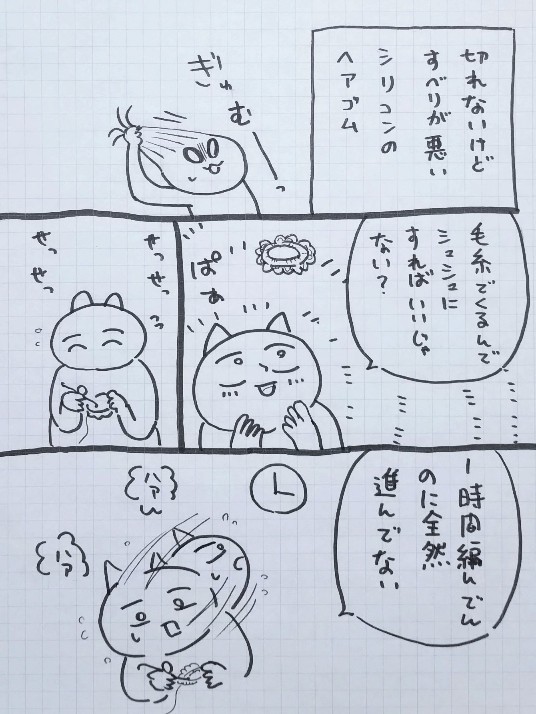 切れないけど
すべりが悪い
シリコンの
ヘアゴム
ぎゅむっ
毛糸でくるんで
シュシュに
すればいいじゃ
ない？
ぱぁ
せっせっ
せっせっ
1時間編んでん
のに全然
進んでない
ハァ
ハァ